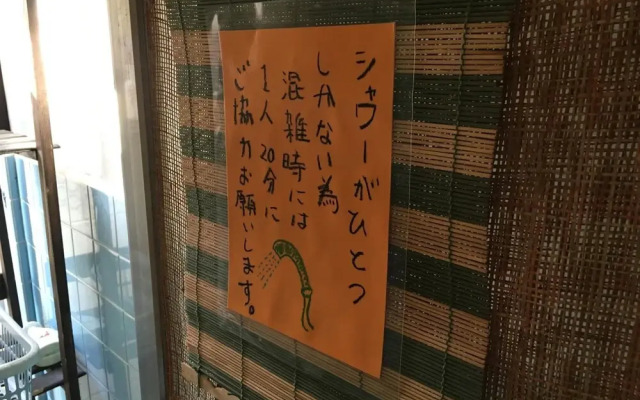 シャワーがひとつ
しかない為
混雑時には
1人 20分に
ご協力お願いします。